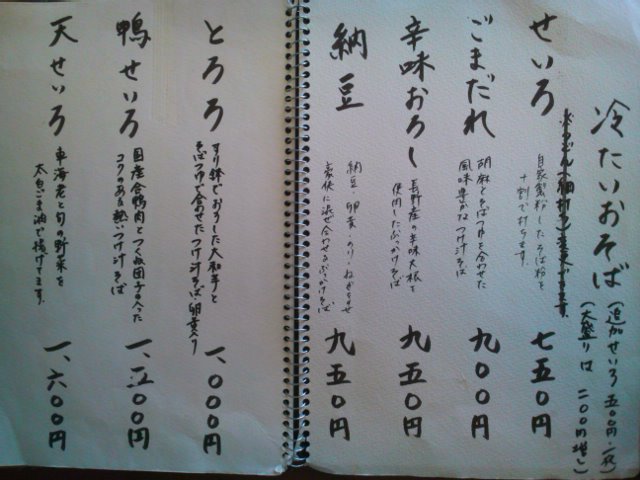 冷たいおそば
(追加せいろ 五〇〇円/一枚)
(大盛りは 二〇〇円増し)
せいろ
自家製粉したそば粉を
十割で打ちます。
七五〇円
ごまだれ
胡麻とそばつゆを合わせた
風味豊かなつけ汁そば
九〇〇円
辛味おろし
長野産の辛味大根を
使用したぶっかけそば
九五〇円
納豆
納豆・卵黄・のり・ねぎをのせ
豪快に混ぜ合わせるぶっかけそば
九五〇円
とろろ
すり鉢でおろした大和芋と
そばつゆで合わせたつけ汁そば 卵黄入り
一、〇〇〇円
鴨せいろ
国産合鴨肉とつくね団子の入った
コクのある熱いつけ汁そば
一、五〇〇円
天せいろ
車海老と旬の野菜を
太白ごま油で揚げてます。
一、六〇〇円